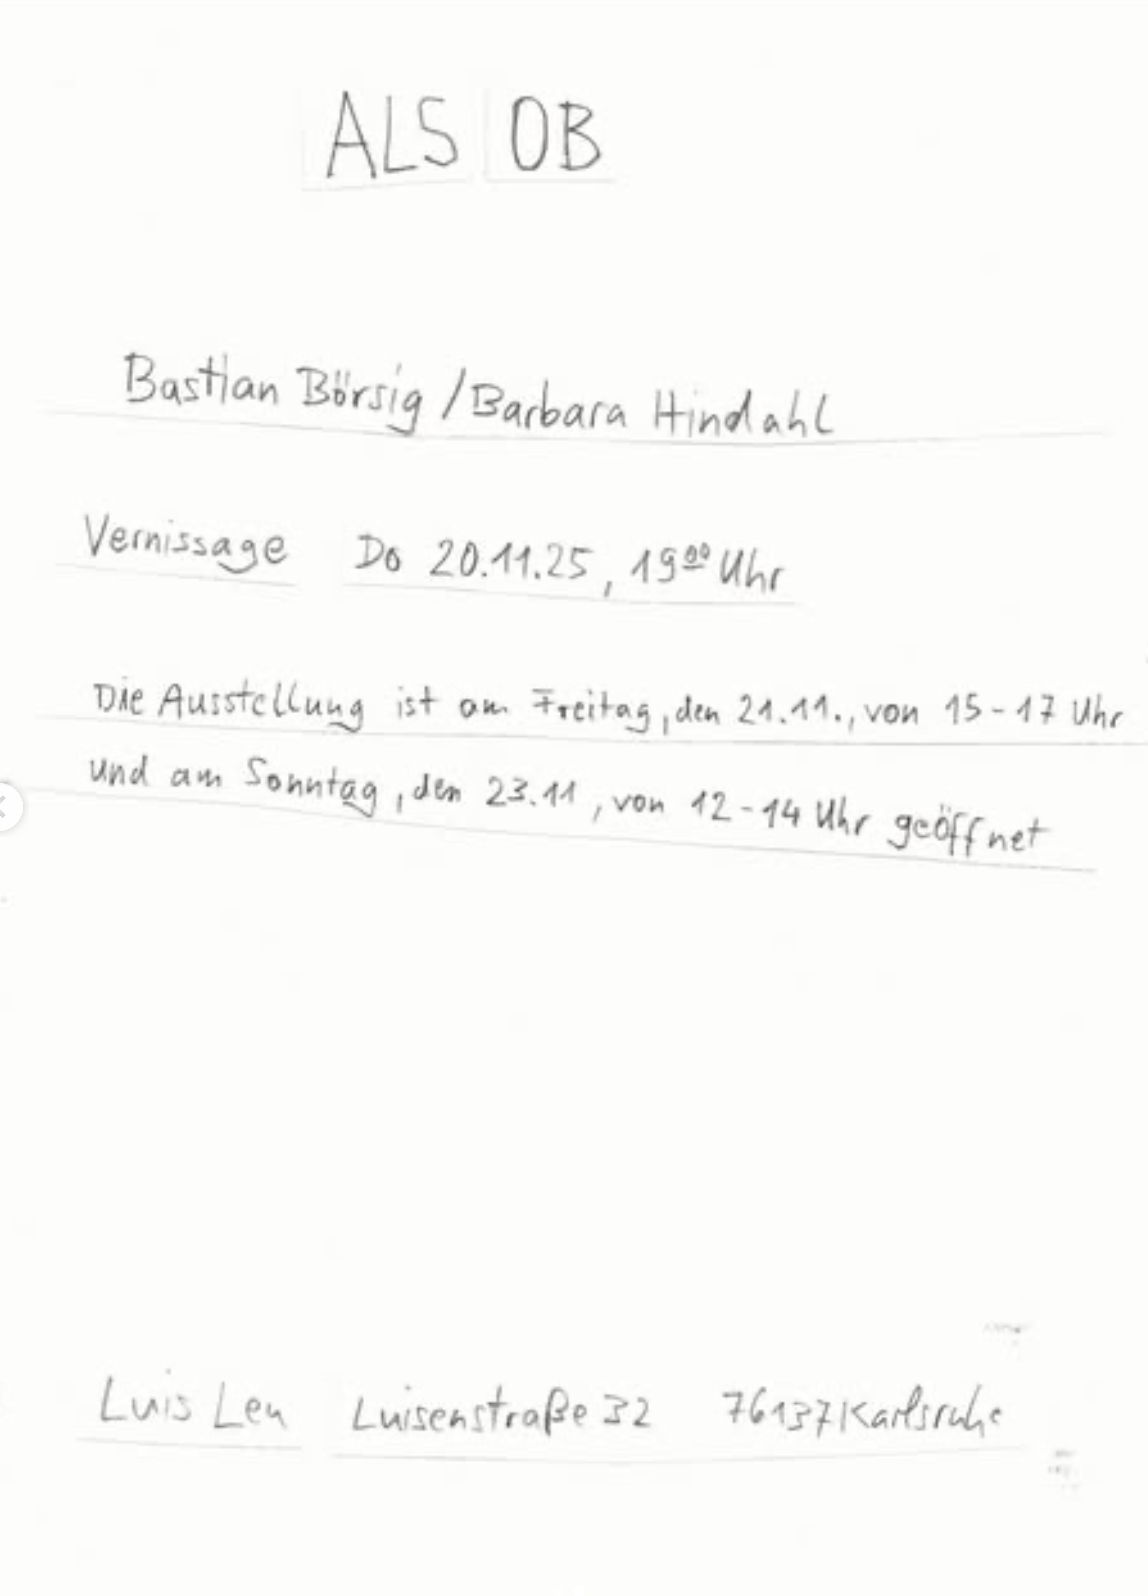 ALS OB
Bastian Börsig / Barbara Hindahl
Vernissage Do 20.11.25, 19⁰⁰ Uhr
Die Ausstellung ist am Freitag, den 21.11., von 15-17 Uhr
und am Sonntag, den 23.11, von 12-14 Uhr geöffnet
Luis Leu Luisenstraße 32 76137 Karlsruhe